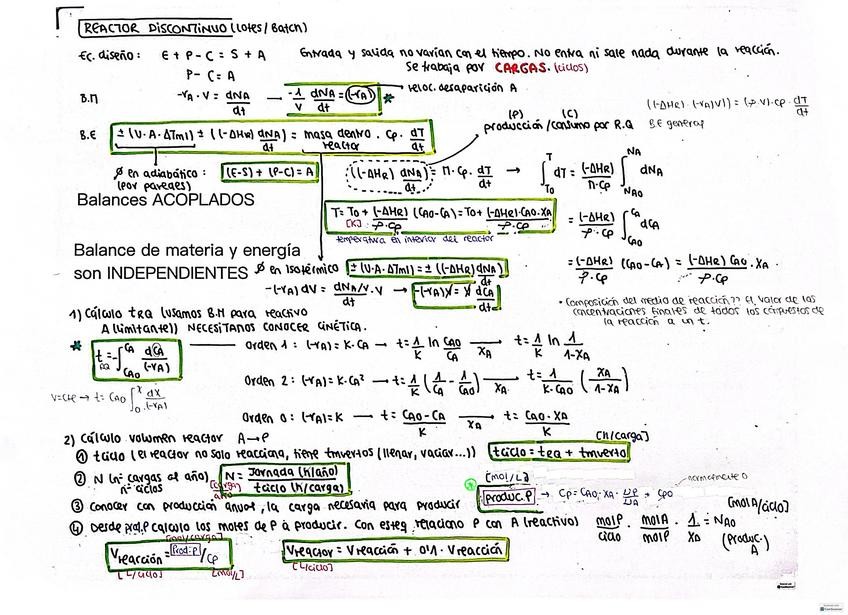 REACTOR DISCONTINUO (Lotes/Batch)
Ec. diseño: E + P - C = S + A
Entrada y salida no varían con el tiempo. No entra ni sale nada durante la reacción.
P - C = A
Se trabaja por CARGAS. (ciclos)
B.M
-rA · V = dNA/dt → -1/V dNA/dt = (-rA) *
veloc. desaparición A
B.E ± (U·A·ΔTml) ± ((-ΔHR) dNA/dt) = masa dentro reactor · Cp · dT/dt
(P) (C)
producción/consumo por R.Q
((-ΔHR)·(-rA)V)) = (ρ·V)·Cp·dT/dt
B.E general
Ø en adiabático: (por paredes)
(E-S) + (P-C) = A
((-ΔHR) dNA/dt) = M·Cp·dT/dt → ∫T0^T dT = (-ΔHR)/(M·Cp) ∫NA0^NA dNA
Balances ACOPLADOS
T = T0 + (-ΔHR)/(ρ·Cp) (CA0-CA) = T0 + (-ΔHR)·CA0·XA/(ρ·Cp)
[K]
temperatura en interior del reactor
= (-ΔHR)/(ρ·Cp) ∫CA0^CA dCA
Balance de materia y energía
son INDEPENDIENTES
Ø en Isotérmico ± (U·A·ΔTml) = ± ((-ΔHR) dNA/dt)
= (-ΔHR)/(ρ·Cp) (CA0-CA) = (-ΔHR) CA0/(ρ·Cp) · XA
-(-rA) dV = dNA/V·V/dt → -(-rA)V = V dCA/dt
• Composición del medio de reacción?? El valor de las
concentraciones finales de todos los compuestos de
la reacción a un t.
1) Cálculo tRQ (usamos B.M para reactivo
A (limitante)) NECESITAMOS CONOCER CINÉTICA.
* tRQ = -∫CA0^CA dCA/(-rA)
Orden 1: (-rA) = K·CA → t = 1/K ln CA0/CA → XA t = 1/K ln 1/(1-XA)
Orden 2: (-rA) = K·CA² → t = 1/K (1/CA - 1/CA0) → XA t = 1/(K·CA0) (XA/(1-XA))
V=cte → t = CA0 ∫0^X dX/(-rA)
Orden 0: (-rA) = K → t = (CA0-CA)/K → XA t = CA0·XA/K
2) Cálculo volumen reactor A→P
[h/carga]
① tciclo (el reactor no solo reacciona, tiene tmuertos (llenar, vaciar...)) tciclo = tRQ + tmuerto
② N (nº cargas al año) nº ciclos [carga/año] N = Jornada (h/año)/tciclo (h/carga)
[mol/L]
normalmente 0
③ Conocer con producción anual, la carga necesaria para producir Produc.P → CP = CA0·XA·υP/υA + CP0
[mol A/ciclo]
④ Desde prod.P calculo los moles de P a producir. Con esteq. relaciono P con A (reactivo) molP/ciclo · molA/molP · 1/XA = NA0
(Produc. A)
[mol/carga]
Vreacción = Prod.P/CP
[L/ciclo] [mol/L]
Vreactor = Vreacción + 0'1 · Vreacción
[L/ciclo]